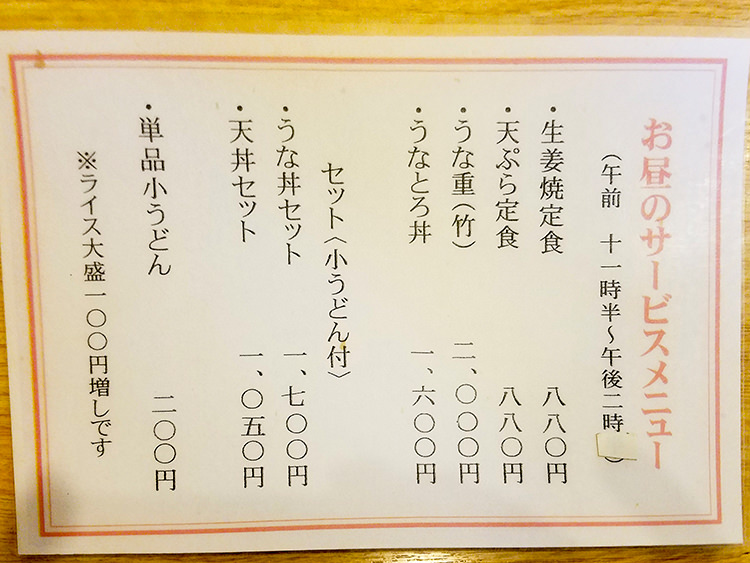 お昼のサービスメニュー
(午前 十一時半～午後二時)
・生姜焼定食 八八〇円
・天ぷら定食 八八〇円
・うな重(竹) 二、〇〇〇円
・うなとろ丼 一、六〇〇円
セット〈小うどん付〉
・うな丼セット 一、七〇〇円
・天丼セット 一、〇五〇円
・単品小うどん 二〇〇円
※ライス大盛一〇〇円増しです